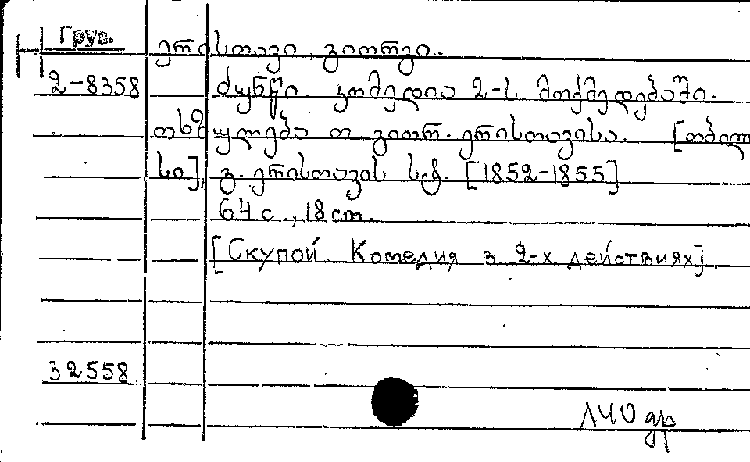 Груз.
ერისთავი, გიორგი.
2-8358 ძუნწი. კომედია 2-ს. მოქმედებაში.
თხზულება თ. გიორ. ერისთავისა. [თბილ
სი], გ. ერისთავის სტ. [1852-1855]
64 с., 18 cm.
[Скупой. Комедия в 2-х действиях].
32558